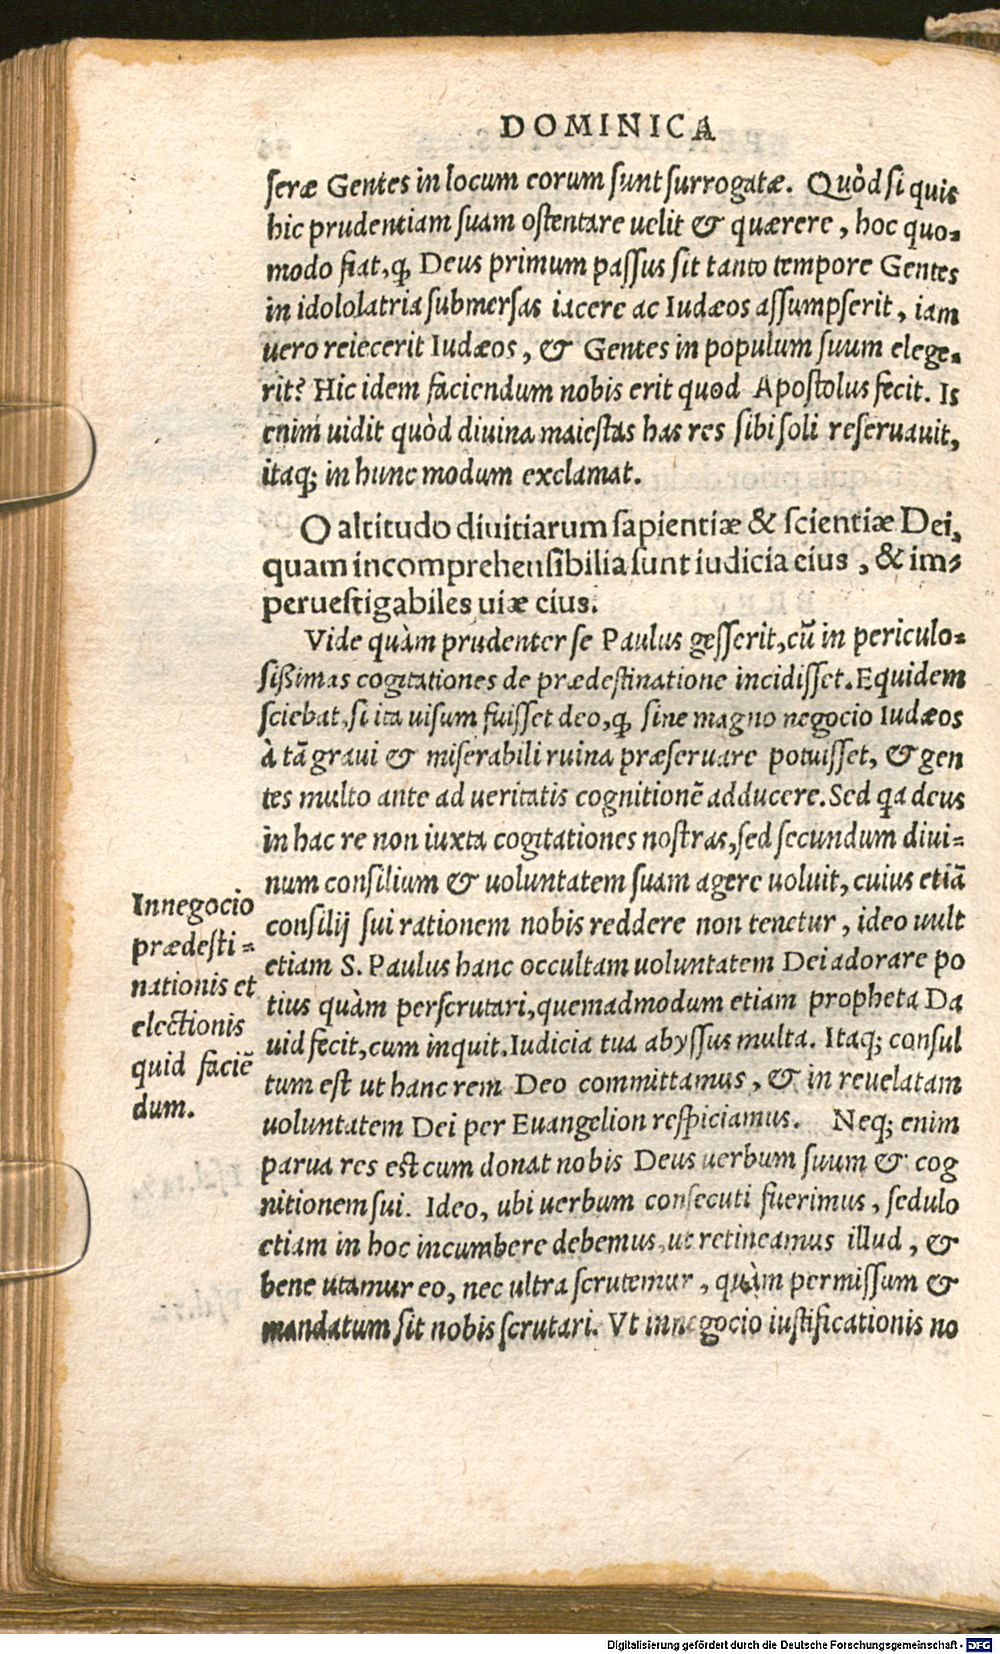 DOMINICA
seræ Gentes in locum eorum sunt surrogatæ. Quòd si quis
hic prudentiam suam ostentare uelit & quærere, hoc quo-
modo fiat, ꝙ Deus primum passus sit tanto tempore Gentes
in idololatria submersas iacere ac Iudæos assumpserit, iam
uero reiecerit Iudæos, & Gentes in populum suum elege-
rit? Hic idem faciendum nobis erit quod Apostolus fecit. Is
enim uidit quòd diuina maiestas has res sibi soli reseruauit,
itaq; in hunc modum exclamat.
O altitudo diuitiarum sapientiæ & scientiæ Dei,
quam incomprehensibilia sunt iudicia eius, & im-
peruestigabiles uiæ eius.
Vide quàm prudenter se Paulus gesserit, cũ in periculo-
sißimas cogitationes de prædestinatione incidisset. Equidem
sciebat, si ita uisum fuisset deo, ꝙ sine magno negocio Iudæos
à tã graui & miserabili ruina præseruare potuisset, & gen
tes multo ante ad ueritatis cognitionẽ adducere. Sed q̃a deus
in hac re non iuxta cogitationes nostras, sed secundum diui-
num consilium & uoluntatem suam agere uoluit, cuius etiã
consilij sui rationem nobis reddere non tenetur, ideo uult
etiam S. Paulus hanc occultam uoluntatem Dei adorare po
tius quàm perscrutari, quemadmodum etiam propheta Da
uid fecit, cum inquit. Iudicia tua abyssus multa. Itaq; consul
tum est ut hanc rem Deo committamus, & in reuelatam
uoluntatem Dei per Euangelion respiciamus. Neq; enim
parua res est cum donat nobis Deus uerbum suum & cog
nitionem sui. Ideo, ubi uerbum consecuti fuerimus, sedulo
etiam in hoc incumbere debemus, ut retineamus illud, &
bene utamur eo, nec ultra scrutemur, quàm permissum &
mandatum sit nobis scrutari. Vt in negocio iustificationis no
In negocio
prædesti-
nationis et
electionis
quid faciẽ
dum.
Digitalisierung gefördert durch die Deutsche Forschungsgemeinschaft - DFG